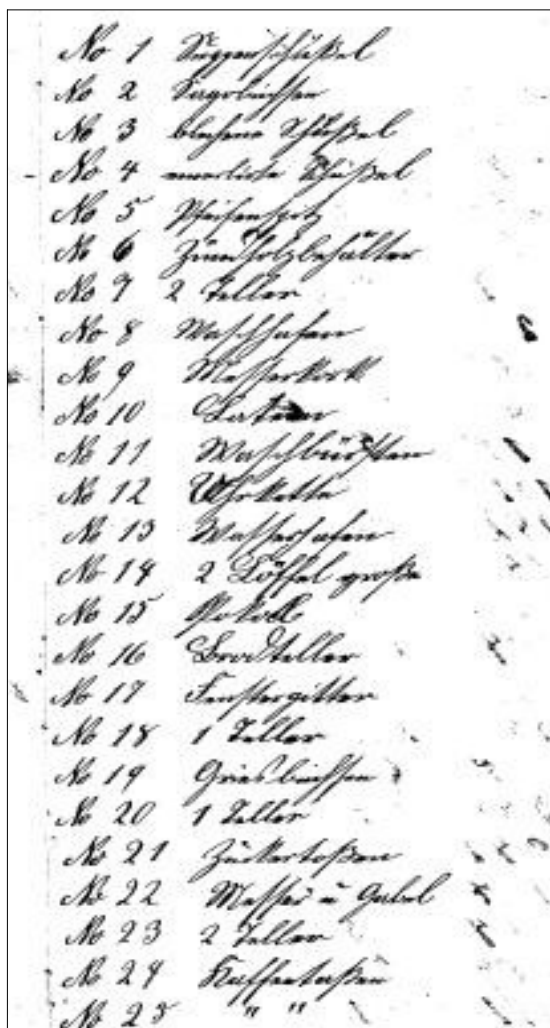 No 1 Suppenschüßel
No 2 Sagobüchsen
No 3 blechene Schüßel
No 4 Schüßel
No 5 Pfeifenspitz
No 6 Zündholzbehälter
No 7 2 Teller
No 8 Waschhafen
No 9 Messerkorb
No 10
No 11 Waschbürsten
No 12 Uhrkette
No 13 Wasserhafen
No 14 2 Löffel große
No 15 Pokall
No 16 Brodteller
No 17 Fenstergitter
No 18 1 Teller
No 19 Griesbüchsen
No 20 1 Teller
No 21 Zuckertaßen
No 22 Messer u Gabel
No 23 2 Teller
No 24 Kaffeetaßen
No 25 " "